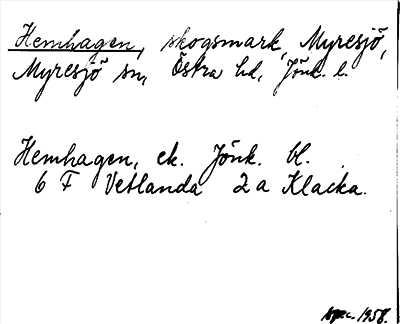 Hemhagen, skogsmark, Myresjö,
Myresjö sn, Östra hd, Jönk. l.
Hemhagen, ek. Jönk. bl.
6 F Vetlanda 2a Klacka.
1958.